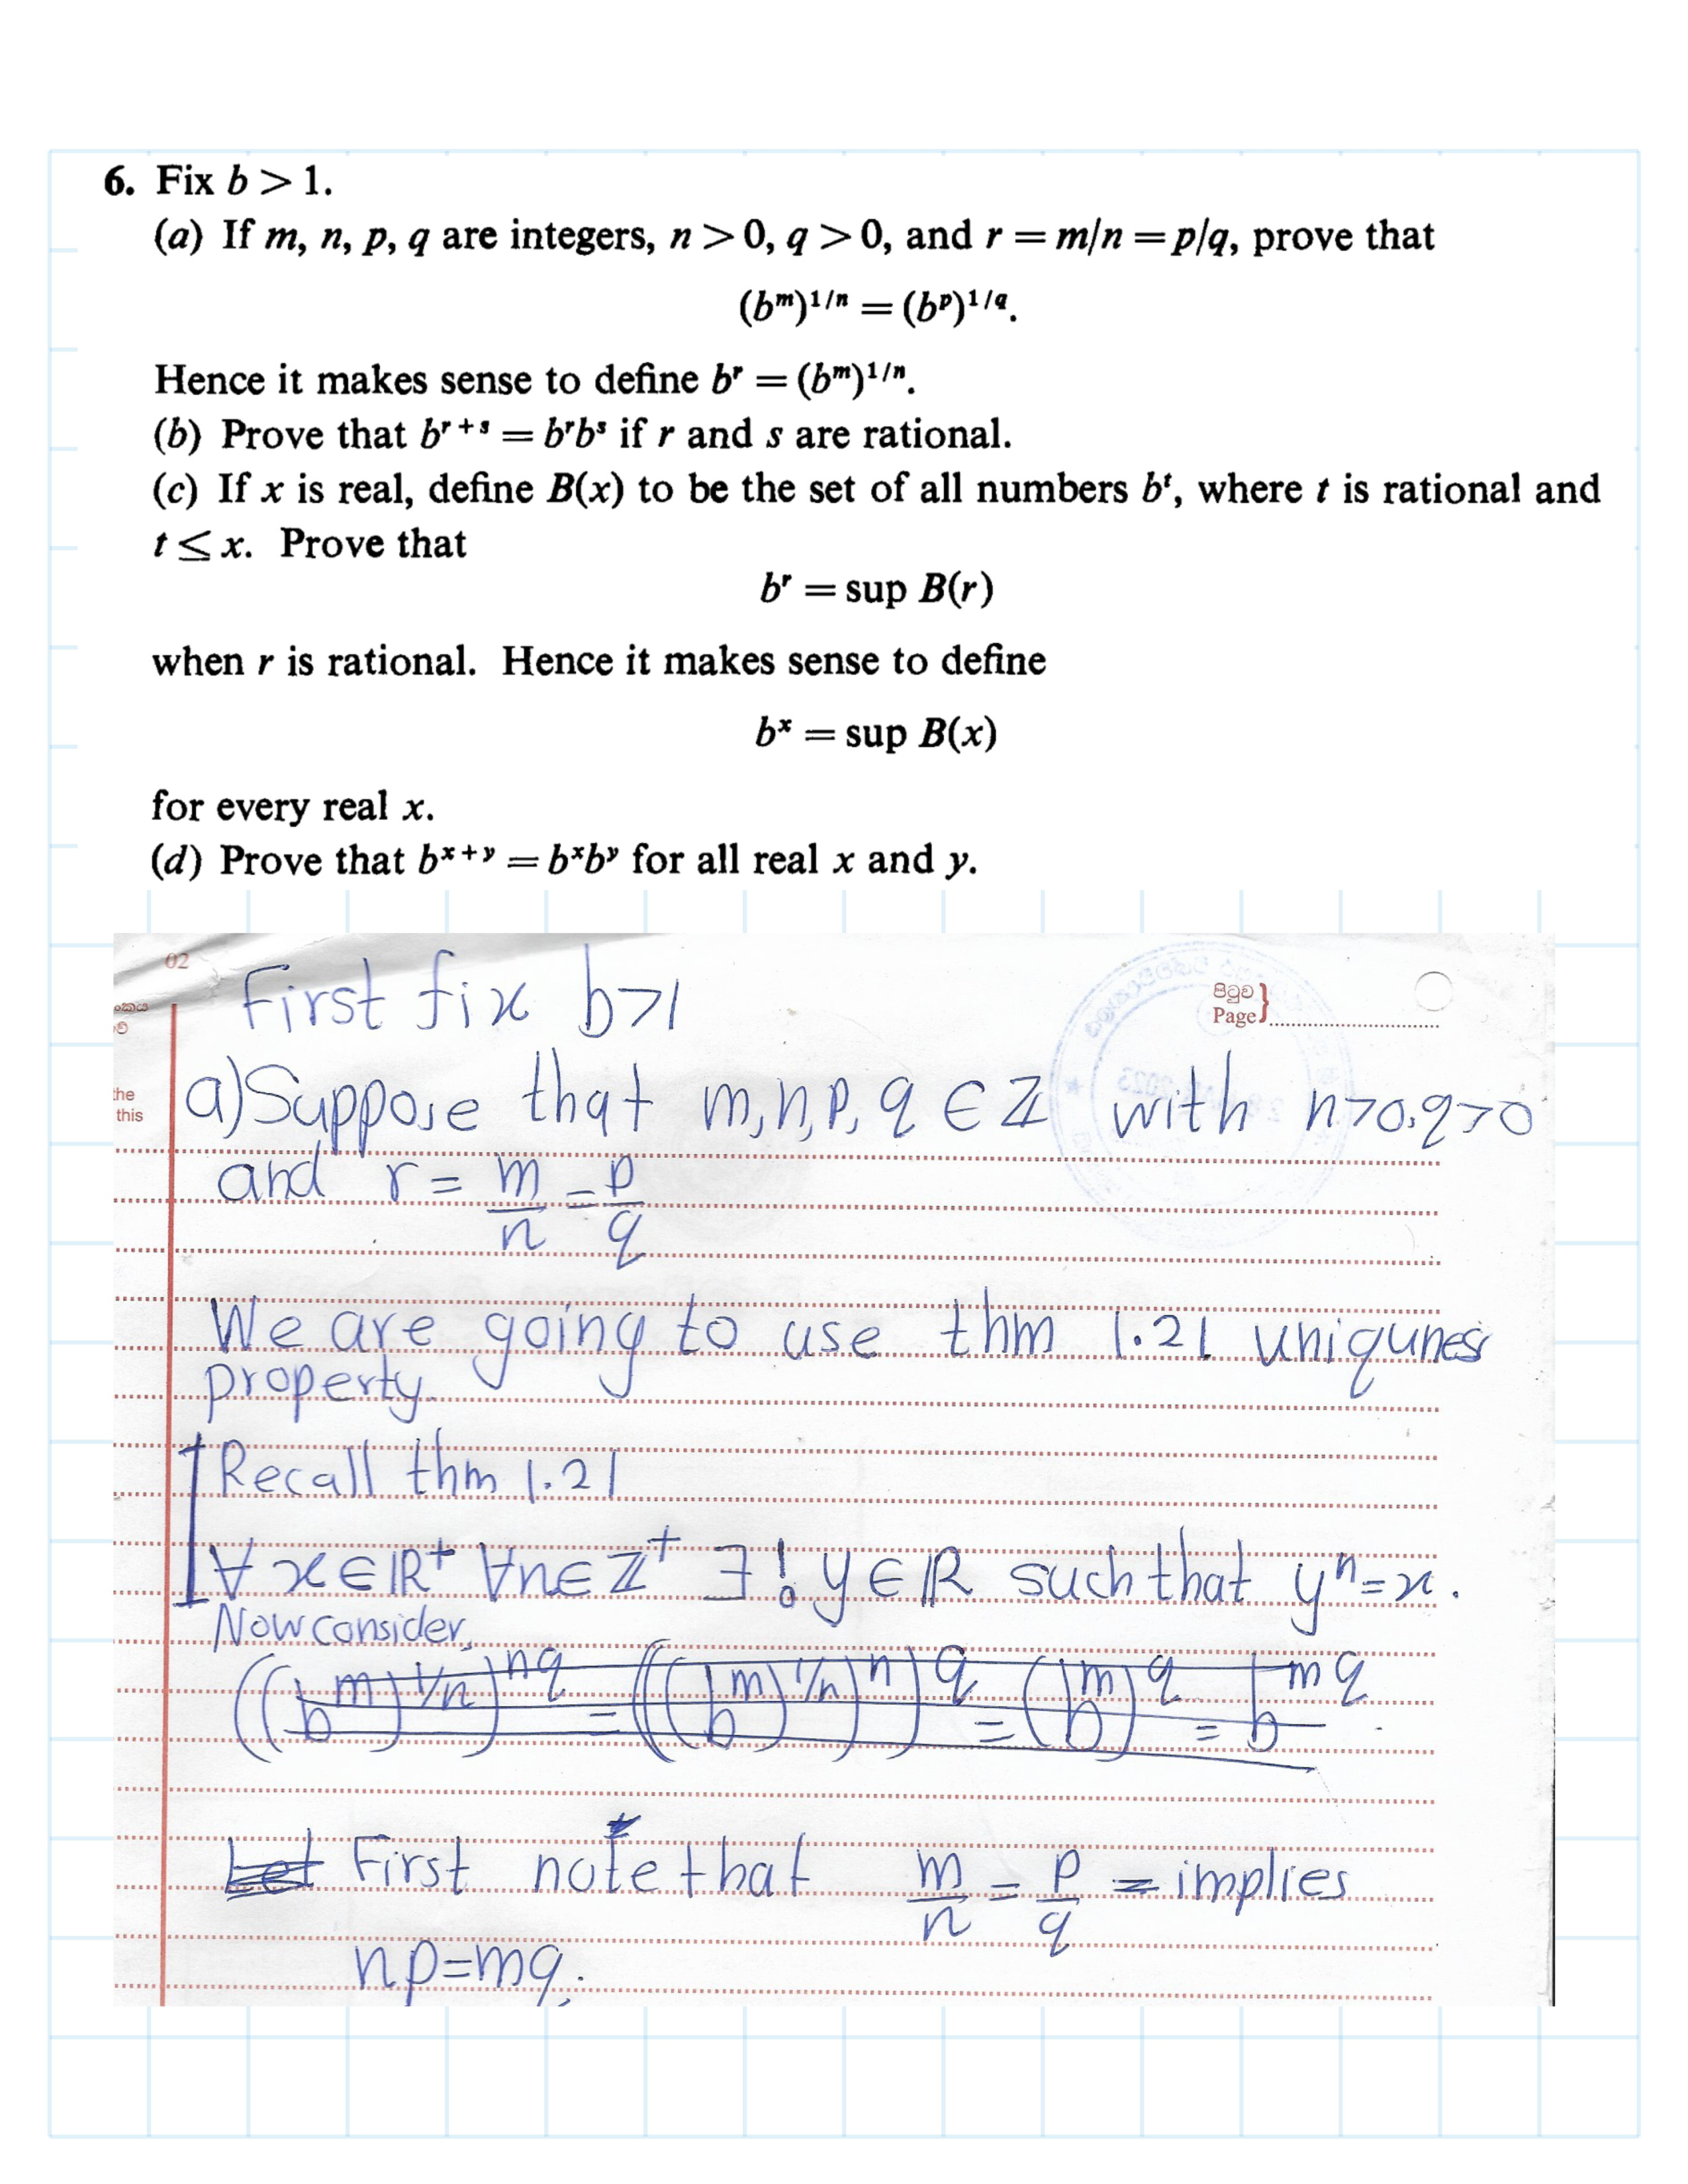 6. Fix b > 1.
(a) If m, n, p, q are integers, n > 0, q > 0, and r = m/n = p/q, prove that
(bᵐ)¹/ⁿ = (bᵖ)¹/q.
Hence it makes sense to define bʳ = (bᵐ)¹/ⁿ.
(b) Prove that bʳ⁺ˢ = bʳbˢ if r and s are rational.
(c) If x is real, define B(x) to be the set of all numbers bᵗ, where t is rational and
t ≤ x. Prove that
bʳ = sup B(r)
when r is rational. Hence it makes sense to define
bˣ = sup B(x)
for every real x.
(d) Prove that bˣ⁺ʸ = bˣbʸ for all real x and y.
02
First fix b>1
පිටුව
Page
the
this
a) Suppose that m,n,p,q ∈ ℤ with n>0,q>0
and r = m/n = p/q
We are going to use thm 1.21 uniqunes
property.
Recall thm 1.21
∀ x∈ℝ⁺ ∀n∈ℤ⁺ ∃! y∈ℝ such that yⁿ=x.
Now consider,
((bᵐ)^1/n)^nq = (((bᵐ)^1/n)ⁿ)^q = (bᵐ)^q = b^mq.
Let First note that m/n = p/q = implies
np=mq.